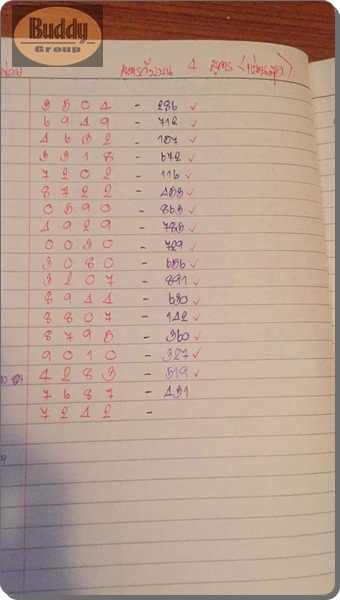 Buddy
Group
สูตรวิ่งบน 4 สูตร
9504 - 286 ✓
6949 - 712 ✓
4632 - 107 ✓
3318 - 672 ✓
7202 - 116 ✓
8722 - 453 ✓
0590 - 863 ✓
4929 - 785 ✓
0030 - 729 ✓
3080 - 656 ✓
3207 - 891 ✓
8944 - 630 ✓
8807 - 142 ✓
8795 - 360 ✓
9010 - 327 ✓
4283 - 519 ✓
7687 - 431
7242 -